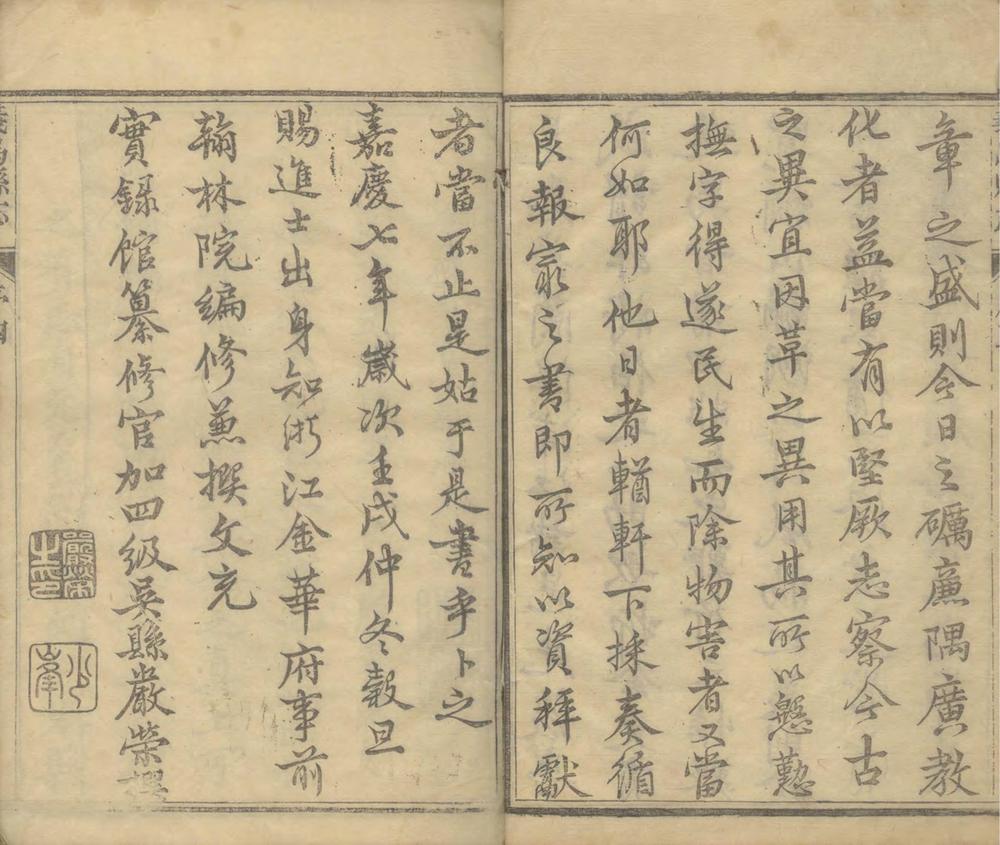 章之盛則今日之礪廉隅廣教
化者益當有以堅厥志察今古
之異宜因革之異用其所以慇懃
撫字得遂民生而除物害者又當
何如耶他日者輶軒下採奏循
良報冣之書即所知以資拜獻
者當不止是姑于是書乎卜之
嘉慶七年歲次壬戌仲冬穀旦
賜進士出身知浙江金華府事前
翰林院編修兼撰文充
實録館纂修官加四級吳縣嚴榮撰
嚴榮之印
少峯
義烏縣志
序
四